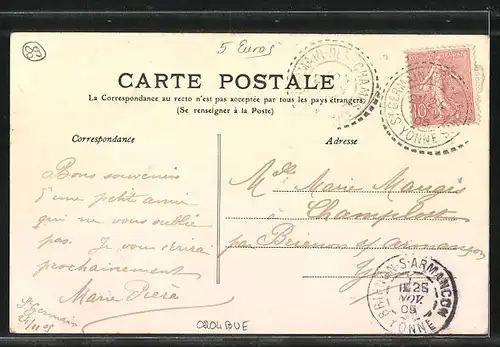 5 Euros
CARTE POSTALE
La Correspondance au recto n'est pas acceptée par tous les pays étrangers.
(Se renseigner à la Poste)
Correspondance
Adresse
Bons souvenirs
d'une petite amie
qui ne vous oublie
pas. Je vous écrirai
prochainement
Marie
St Germain
24/11 05
Mlle Marie Maugis
à Champlost
par Brienon s/ armançon
Yonne
ST GERMAIN-DES-CHAMPS
ST GERMAIN
05
YONNE
10
BRIENON-S-ARMANÇON
25
NOV.
05
YONNE
0204BUE